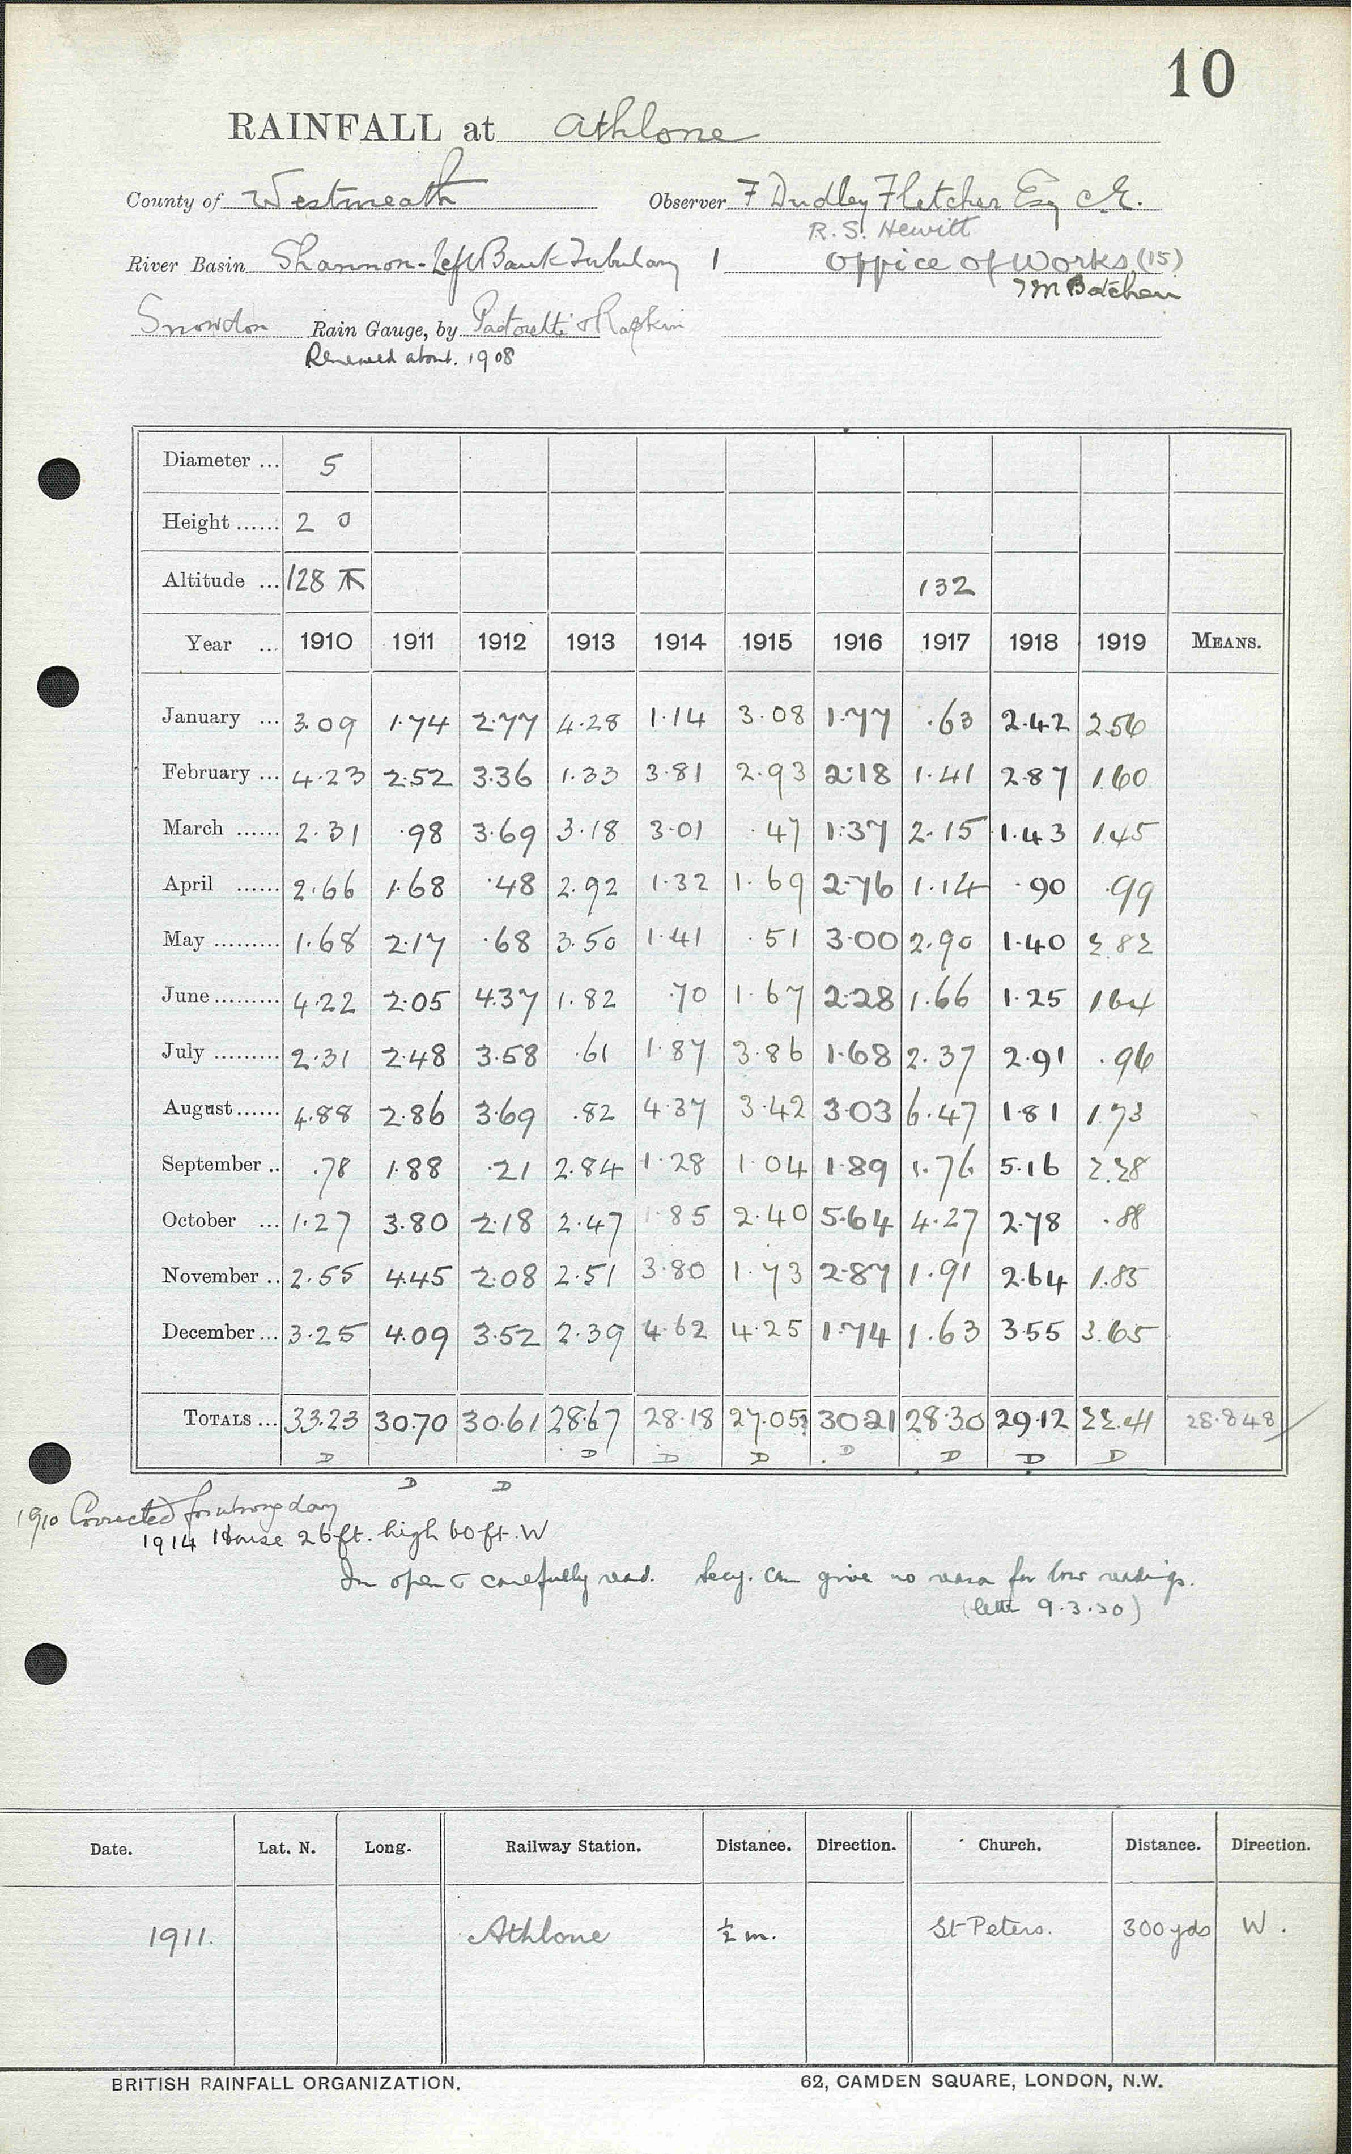 10
RAINFALL at Athlone
County of Westmeath Observer F Dudley Fletcher Esq C.E.
R. S. Hewitt
River Basin Shannon - Left Bank Tributary 1 Office of Works (15)
Snowdon Rain Gauge, by Pastorelli & Rapkin
Renewed about. 1908
Diameter ... 5
Height ...... 2 0
Altitude ... 128 132
Year ... 1910 1911 1912 1913 1914 1915 1916 1917 1918 1919 MEANS.
January ... 3.09 1.74 2.77 4.28 1.14 3.08 1.77 .63 2.42 2.56
February ... 4.23 2.52 3.36 1.33 3.81 2.93 2.18 1.41 2.87 1.60
March ...... 2.31 .98 3.69 3.18 3.01 .47 1.37 2.15 1.43 1.45
April ...... 2.66 1.68 .48 2.92 1.32 1.69 2.76 1.14 .90 .99
May ......... 1.68 2.17 .68 3.50 1.41 .51 3.00 2.90 1.40 2.82
June ......... 4.22 2.05 4.37 1.82 .70 1.67 2.28 1.66 1.25 1.64
July ......... 2.31 2.48 3.58 .61 1.87 3.86 1.68 2.37 2.91 .96
August ...... 4.88 2.86 3.69 .82 4.37 3.42 3.03 6.47 1.81 1.73
September .. .78 1.88 .21 2.84 1.28 1.04 1.89 1.76 5.16 2.28
October ... 1.27 3.80 2.18 2.47 1.85 2.40 5.64 4.27 2.78 .88
November .. 2.55 4.45 2.08 2.51 3.80 1.73 2.87 1.91 2.64 1.85
December ... 3.25 4.09 3.52 2.39 4.62 4.25 1.74 1.63 3.55 3.65
TOTALS ... 33.23 30.70 30.61 28.67 28.18 27.05? 30.21 28.30 29.12 22.41 28.848
D D D D D D D D
D D
1910 Corrected for wrong day
1914 House 26ft. high 60ft. W
In open & carefully read. Secy. can give no reason for low readings.
(letter 9.3.20)
Date. Lat. N. Long. Railway Station. Distance. Direction. Church. Distance. Direction.
1911. Athlone ½ m. St Peters. 300 yds W.
BRITISH RAINFALL ORGANIZATION. 62, CAMDEN SQUARE, LONDON, N.W.